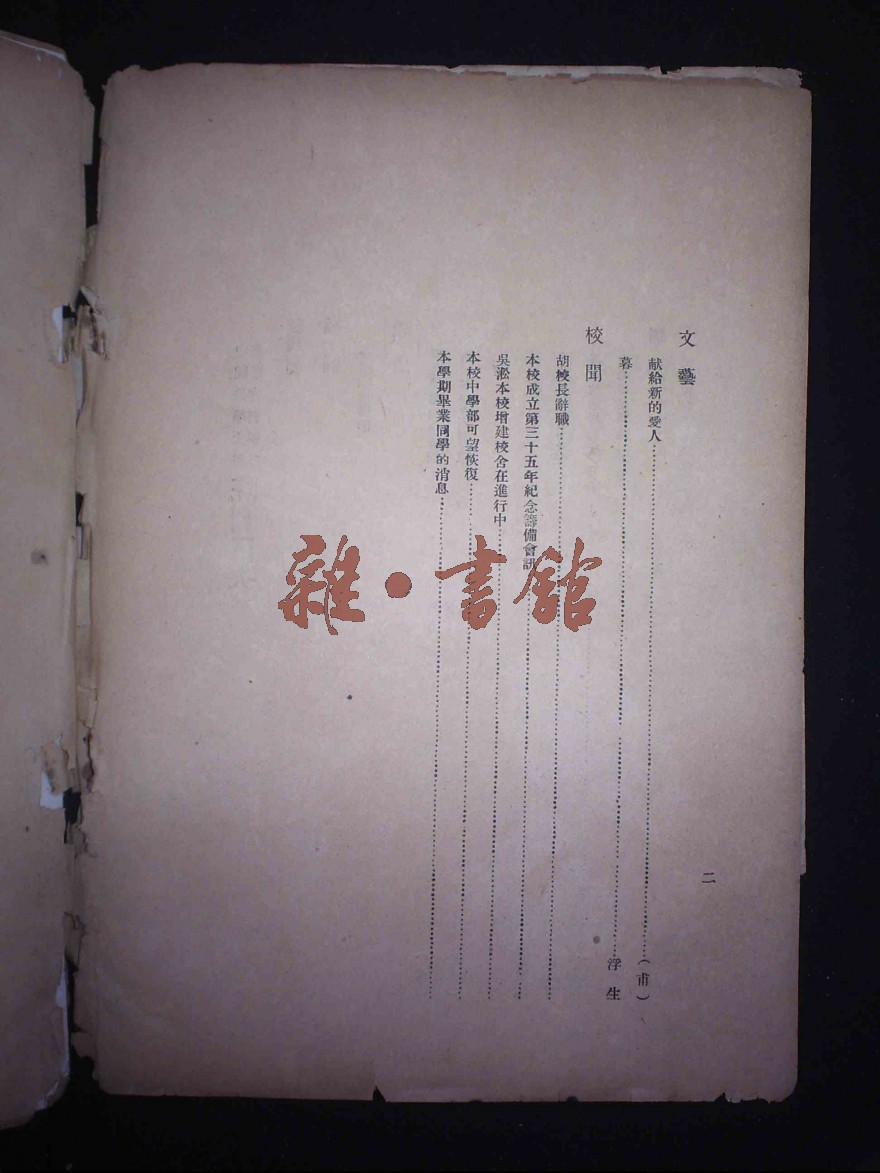 文藝
献給新的愛人……（甫）
暮……浮生
校聞
胡校長辭職……
本校成立第三十五年紀念籌備會訊……
吳淞本校增建校舍在進行中……
本校中學部可望恢復……
本學期畢業同學的消息……
二
雜·書館